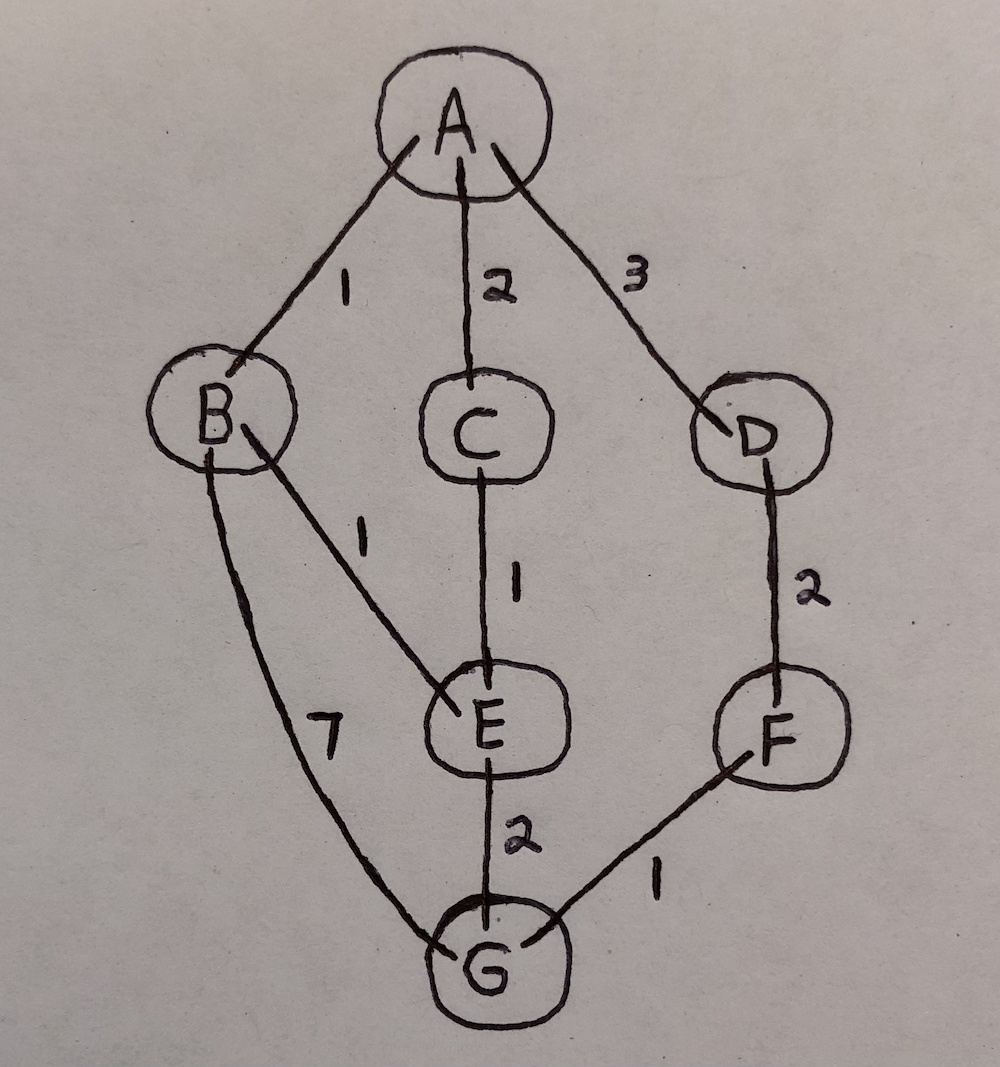 A
1 2 3
B C D
1 1 2
7 E F
2 1
G